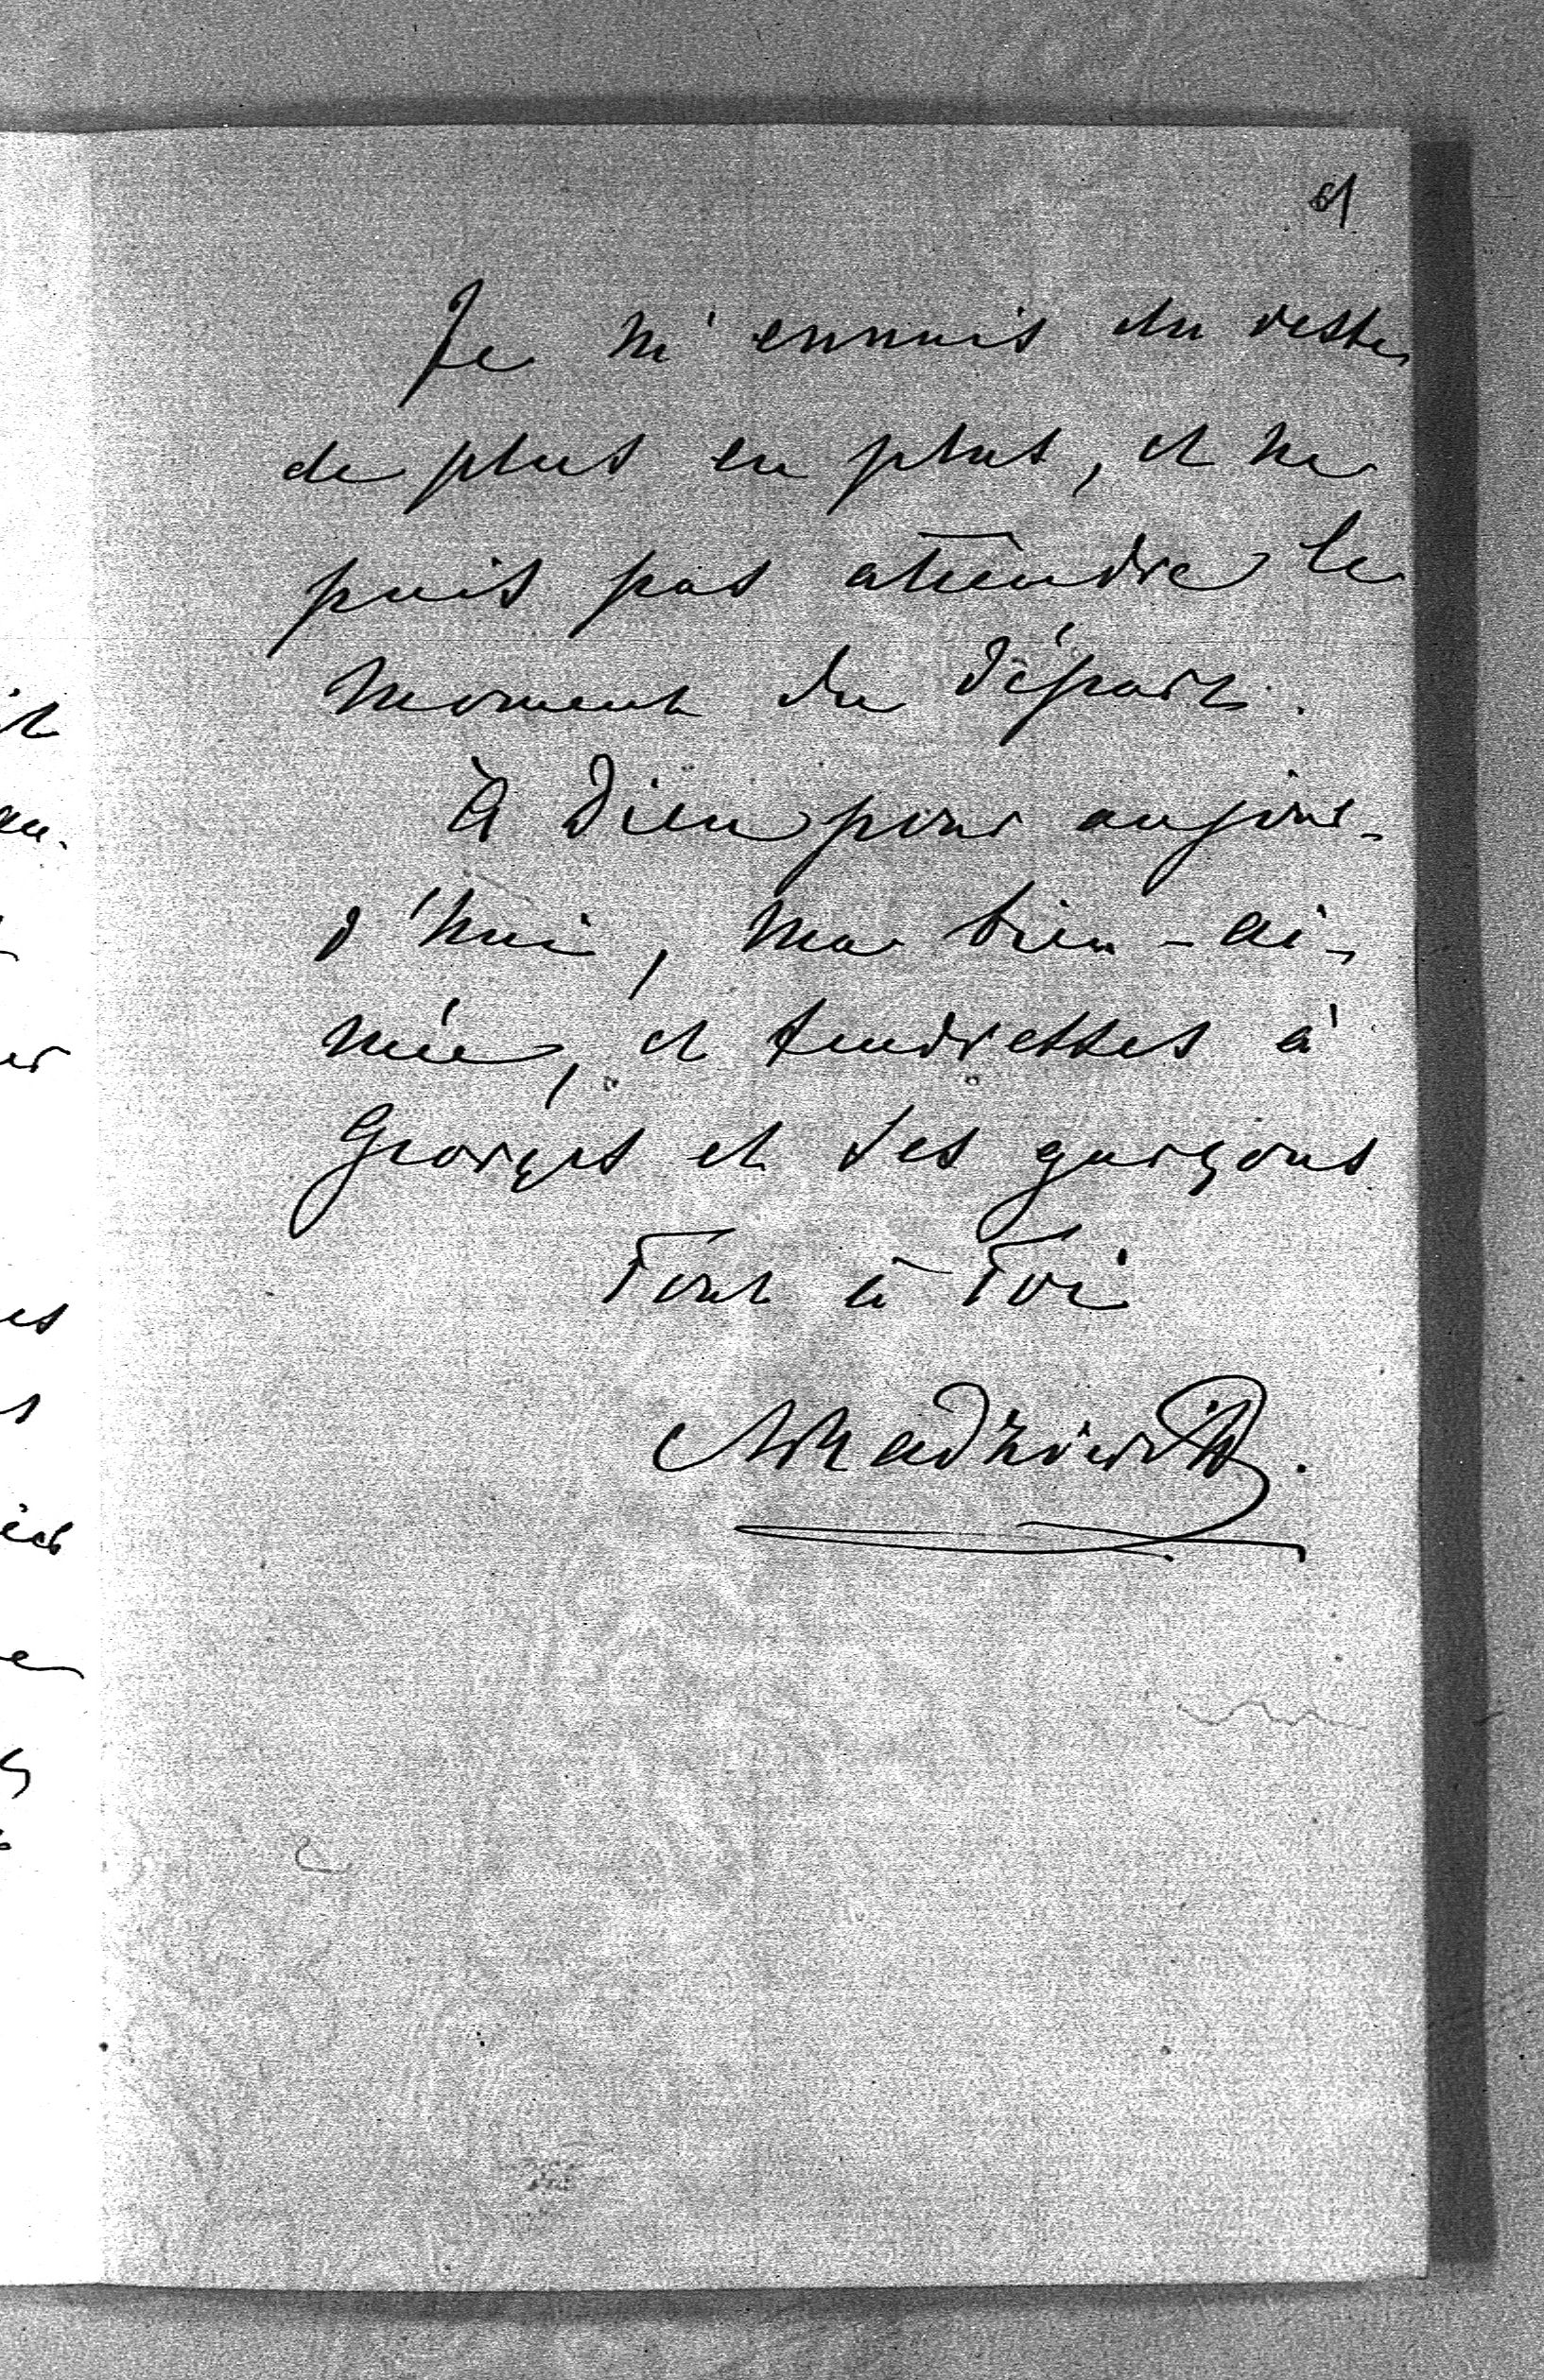 61
Je m'ennuis du reste
de plus en plus, et ne
puis pas attendre le
moment du départ.
à Dieu pour aujour-
d'hui, ma bien-ai-
mée, et tendresses à
Georges et ses garçons
Tout à Toi
ARadziwill.